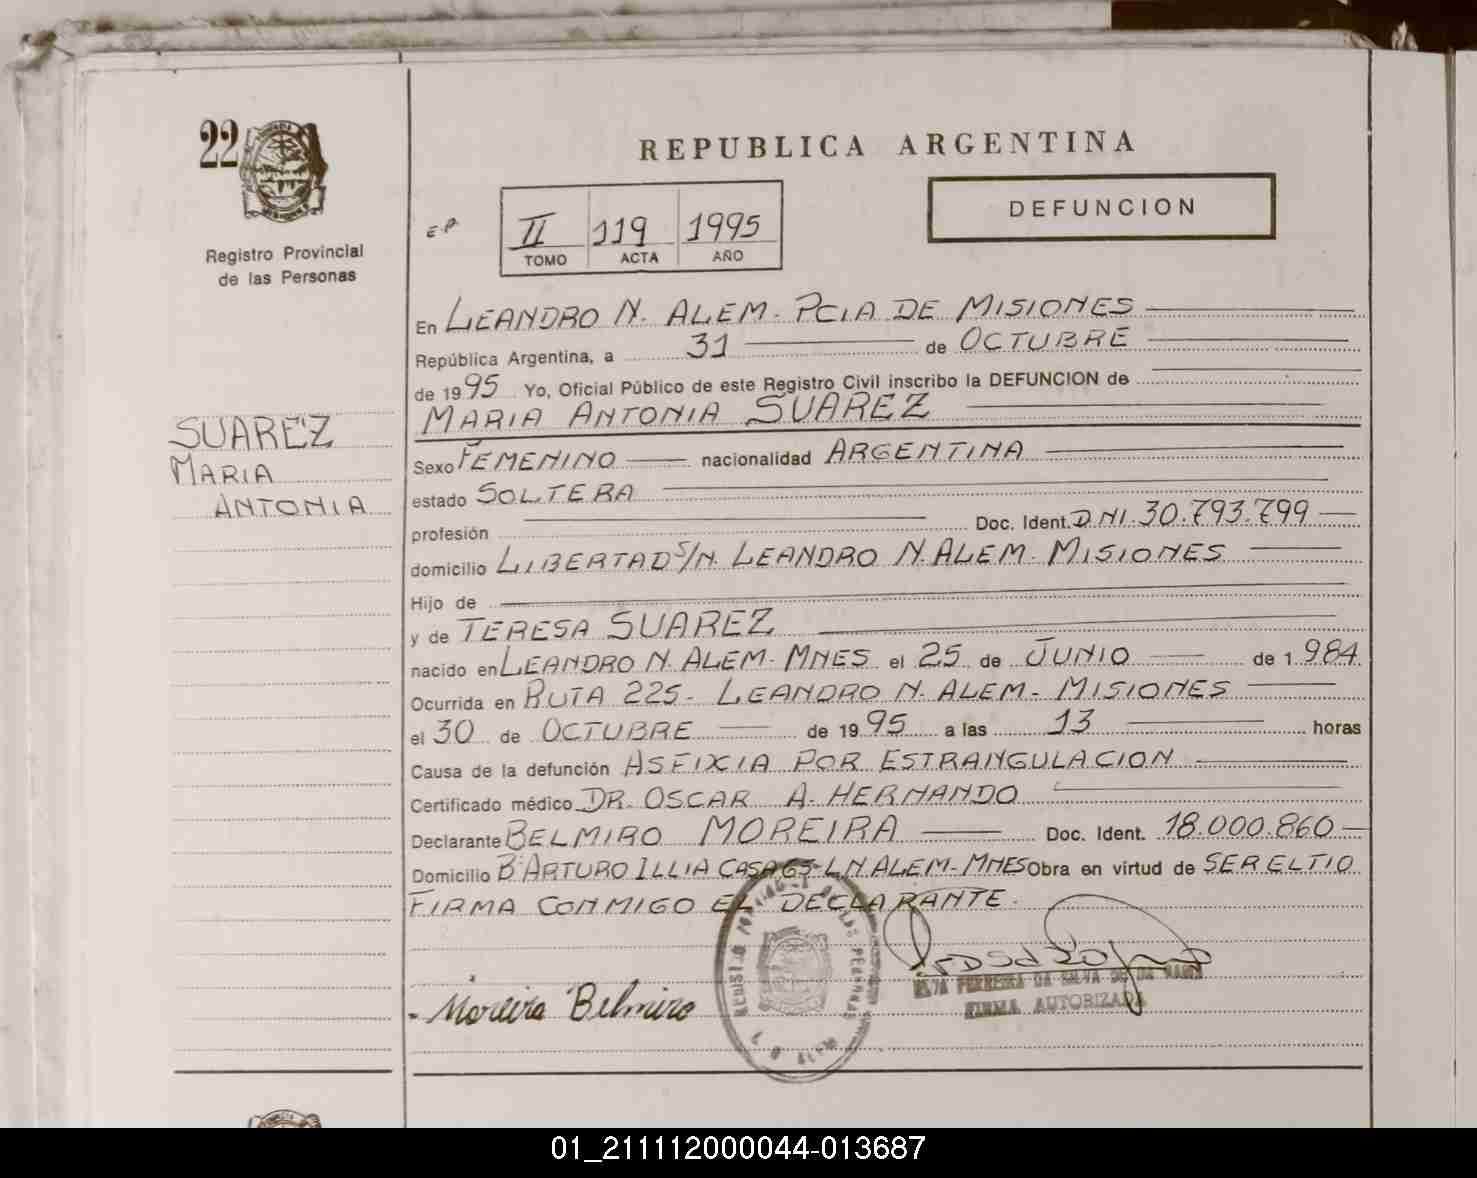 22
Registro Provincial
de las Personas
SUAREZ
MARIA
ANTONIA
REPUBLICA ARGENTINA
DEFUNCION
II 119 1995
TOMO ACTA AÑO
En LEANDRO N. ALEM - PCIA DE MISIONES
República Argentina, a 31 de OCTUBRE
de 1995 Yo, Oficial Público de este Registro Civil inscribo la DEFUNCION de
MARIA ANTONIA SUAREZ
Sexo FEMENINO nacionalidad ARGENTINA
estado SOLTERA
profesión Doc. Ident. DNI. 30.793.799
domicilio LIBERTAD S/N. LEANDRO N. ALEM - MISIONES
Hijo de
y de TERESA SUAREZ
nacido en LEANDRO N. ALEM - MNES el 25 de JUNIO de 1.984
Ocurrida en RUTA 225 - LEANDRO N. ALEM - MISIONES
el 30 de OCTUBRE de 1995 a las 13 horas
Causa de la defunción ASFIXIA POR ESTRANGULACION
Certificado médico DR. OSCAR A. HERNANDO
Declarante BELMIRO MOREIRA Doc. Ident. 18.000.860
Domicilio Bº ARTURO ILLIA CASA 63 - L N ALEM - MNES Obra en virtud de SER EL TIO
FIRMA CONMIGO EL DECLARANTE.
Moreira Belmiro
FERREIRA DA SILVA DE
FIRMA AUTORIZADA
01_211112000044-013687